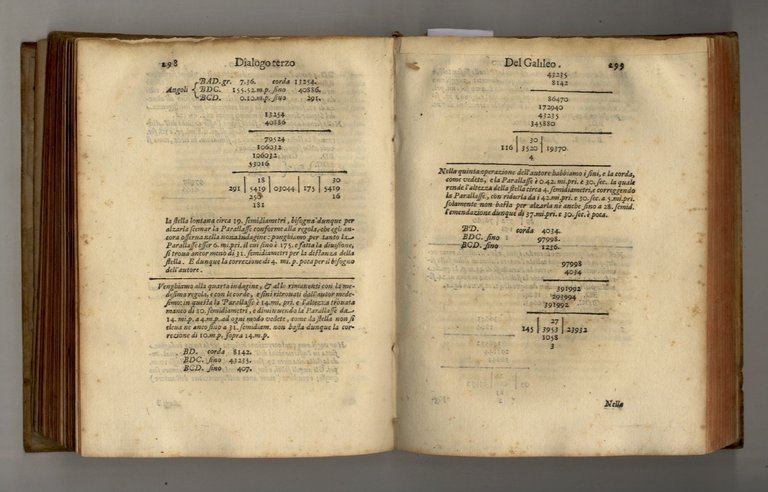 298 Dialogo terzo
BAD. gr. 7.36. corda 13254.
Angoli BDC. 155.52.m.p. sino 40886.
BCD. 0.10.m.p. sino 291.
13254
40886
79524
106032
106032
53016
18 30
291 | 5419 | 03044 | 175 | 5419
250 16
181
la stella lontana circa 19. semidiametri, bisogna dunque per
alzarla scemar la Parallasse conforme alla regola, che egli an-
cora osserva nella nona indagine: ponghiamo per tanto la
Parallasse esser 6. mi.pri. il cui sino è 175. e fatta la divisione,
si trova ancor meno di 31. semidiametri per la distanza della
stella. E dunque la correzione di 4. mi. p. poca per il bisogno
dell'autore.
Venghiamo alla quarta indagine, & alle rimanenti con la me-
desima regola, e con le corde, e sini ritrovati dall'autor mede-
simo: in questa la Parallasse è 14. mi. pri. e l'altezza trovata
manco di 10. semidiametri, e diminuendo la Parallasse da
14. mi. p. a 4. m. p. ad ogni modo vedete, come la stella non si
eleva ne anco sino a 31. semidiam. non basta dunque la cor-
rezione di 10. m.p. sopra 14. m.p.
BD. corda 8142.
BDC. sino 43235.
BCD. sino 407.
Del Galileo. 299
43235
8142
86470
172940
43235
345880
30
116 | 3520 | 19370
4
Nella quinta operazione dell'autore habbiamo i sini, e la corda,
come vedete, e la Parallasse è 0. 42. mi. pri. e 30. sec. la quale
rende l'altezza della stella circa 4. semidiametri, e correggendo
la Parallasse, con ridurla da i 42. mi. pri. e 30. sec. a 5. mi. pri.
solamente non basta per alzarla ne anche sino a 28. semid.
l'emendazione dunque di 37. mi. pri. e 30. sec. è poca.
BD. corda 4034.
BDC. sino 97998.
BCD. sino 1236.
97998
4034
391992
293994
391992
27
145 | 3953 | 23932
1058
3
Nella